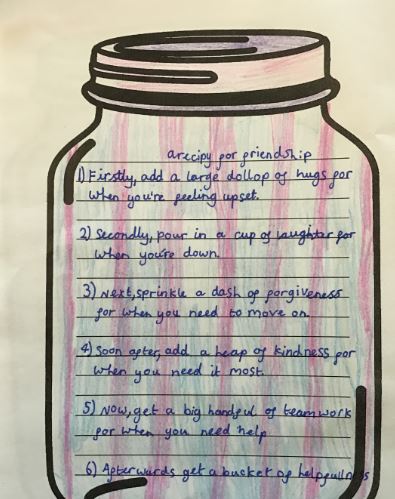 a recipy for friendship
1) Firstly, add a large dollop of hugs for
when you're feeling upset.
2) Secondly, pour in a cup of laughter for
when you're down.
3) Next, sprinkle a dash of forgiveness
for when you need to move on.
4) Soon after, add a heap of kindness for
when you need it most.
5) Now, get a big handful of teamwork
for when you need help
6) Afterwards get a bucket of helpfullness